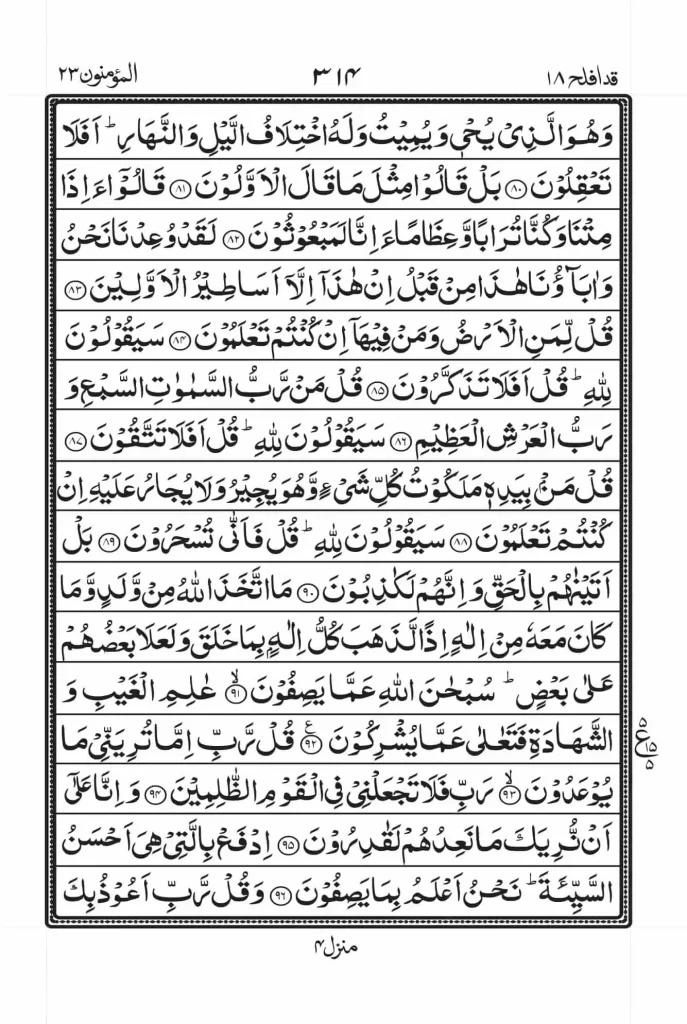 قد افلح ۱۸ ۳۱۴ المؤمنون ۲۳
وَهُوَ الَّذِىۡ يُحۡىٖ وَيُمِيۡتُ وَلَهُ اخۡتِلَافُ الَّيۡلِ وَالنَّهَارِ‌ ؕ اَفَلَا
تَعۡقِلُوۡنَ ﴿۸۰﴾ بَلۡ قَالُوۡا مِثۡلَ مَا قَالَ الۡاَوَّلُوۡنَ ﴿۸۱﴾ قَالُوۡۤا ءَاِذَا
مِتۡنَا وَكُنَّا تُرَابًا وَّعِظَامًا ءَاِنَّا لَمَبۡعُوۡثُوۡنَ ﴿۸۲﴾ لَقَدۡ وُعِدۡنَا نَحۡنُ
وَاٰبَآؤُنَا هٰذَا مِنۡ قَبۡلُ اِنۡ هٰذَاۤ اِلَّاۤ اَسَاطِيۡرُ الۡاَوَّلِيۡنَ ﴿۸۳﴾
قُلْ لِّمَنِ الۡاَرۡضُ وَمَنۡ فِيۡهَاۤ اِنۡ كُنۡتُمۡ تَعۡلَمُوۡنَ ﴿۸۴﴾ سَيَقُوۡلُوۡنَ
لِلّٰهِ‌ ؕ قُلۡ اَفَلَا تَذَكَّرُوۡنَ ﴿۸۵﴾ قُلۡ مَنۡ رَّبُّ السَّمٰوٰتِ السَّبۡعِ وَ
رَبُّ الۡعَرۡشِ الۡعَظِيۡمِ ﴿۸۶﴾ سَيَقُوۡلُوۡنَ لِلّٰهِ‌ ؕ قُلۡ اَفَلَا تَتَّقُوۡنَ ﴿۸۷﴾
قُلۡ مَنۡۢ بِيَدِهٖ مَلَكُوۡتُ كُلِّ شَىۡءٍ وَّهُوَ يُجِيۡرُ وَلَا يُجَارُ عَلَيۡهِ اِنۡ
كُنۡتُمۡ تَعۡلَمُوۡنَ ﴿۸۸﴾ سَيَقُوۡلُوۡنَ لِلّٰهِ‌ ؕ قُلۡ فَاَنّٰى تُسۡحَرُوۡنَ ﴿۸۹﴾ بَلۡ
اَتَيۡنٰهُمۡ بِالۡحَقِّ وَاِنَّهُمۡ لَكٰذِبُوۡنَ ﴿۹۰﴾ مَا اتَّخَذَ اللّٰهُ مِنۡ وَّلَدٍ وَّمَا
كَانَ مَعَهٗ مِنۡ اِلٰهٍ‌ اِذًا لَّذَهَبَ كُلُّ اِلٰهٍۢ بِمَا خَلَقَ وَلَعَلَا بَعۡضُهُمۡ
عَلٰى بَعۡضٍ‌ ؕ سُبۡحٰنَ اللّٰهِ عَمَّا يَصِفُوۡنَ ۙ‏ ﴿۹۱﴾ عٰلِمِ الۡغَيۡبِ وَ
الشَّهَادَةِ فَتَعٰلٰى عَمَّا يُشۡرِكُوۡنَ ع ﴿۹۲﴾ قُلْ رَّبِّ اِمَّا تُرِيَنِّىۡ مَا
يُوۡعَدُوۡنَ ۙ‏ ﴿۹۳﴾ رَبِّ فَلَا تَجۡعَلۡنِىۡ فِى الۡقَوۡمِ الظّٰلِمِيۡنَ ﴿۹۴﴾ وَاِنَّا عَلٰٓى
اَنۡ نُّرِيَكَ مَا نَعِدُهُمۡ لَقٰدِرُوۡنَ ﴿۹۵﴾ اِدۡفَعۡ بِالَّتِىۡ هِىَ اَحۡسَنُ
السَّيِّئَةَ‌ ؕ نَحۡنُ اَعۡلَمُ بِمَا يَصِفُوۡنَ ﴿۹۶﴾ وَقُلْ رَّبِّ اَعُوۡذُ بِكَ
منزل ۴